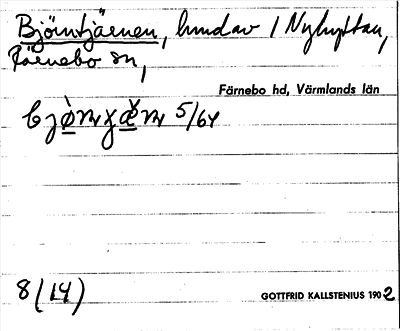 Björntjärnen, hundar / Nyhyttan,
Färnebo sn,
Färnebo hd, Värmlands län
5/64
8 (14)
GOTTFRID KALLSTENIUS 1902